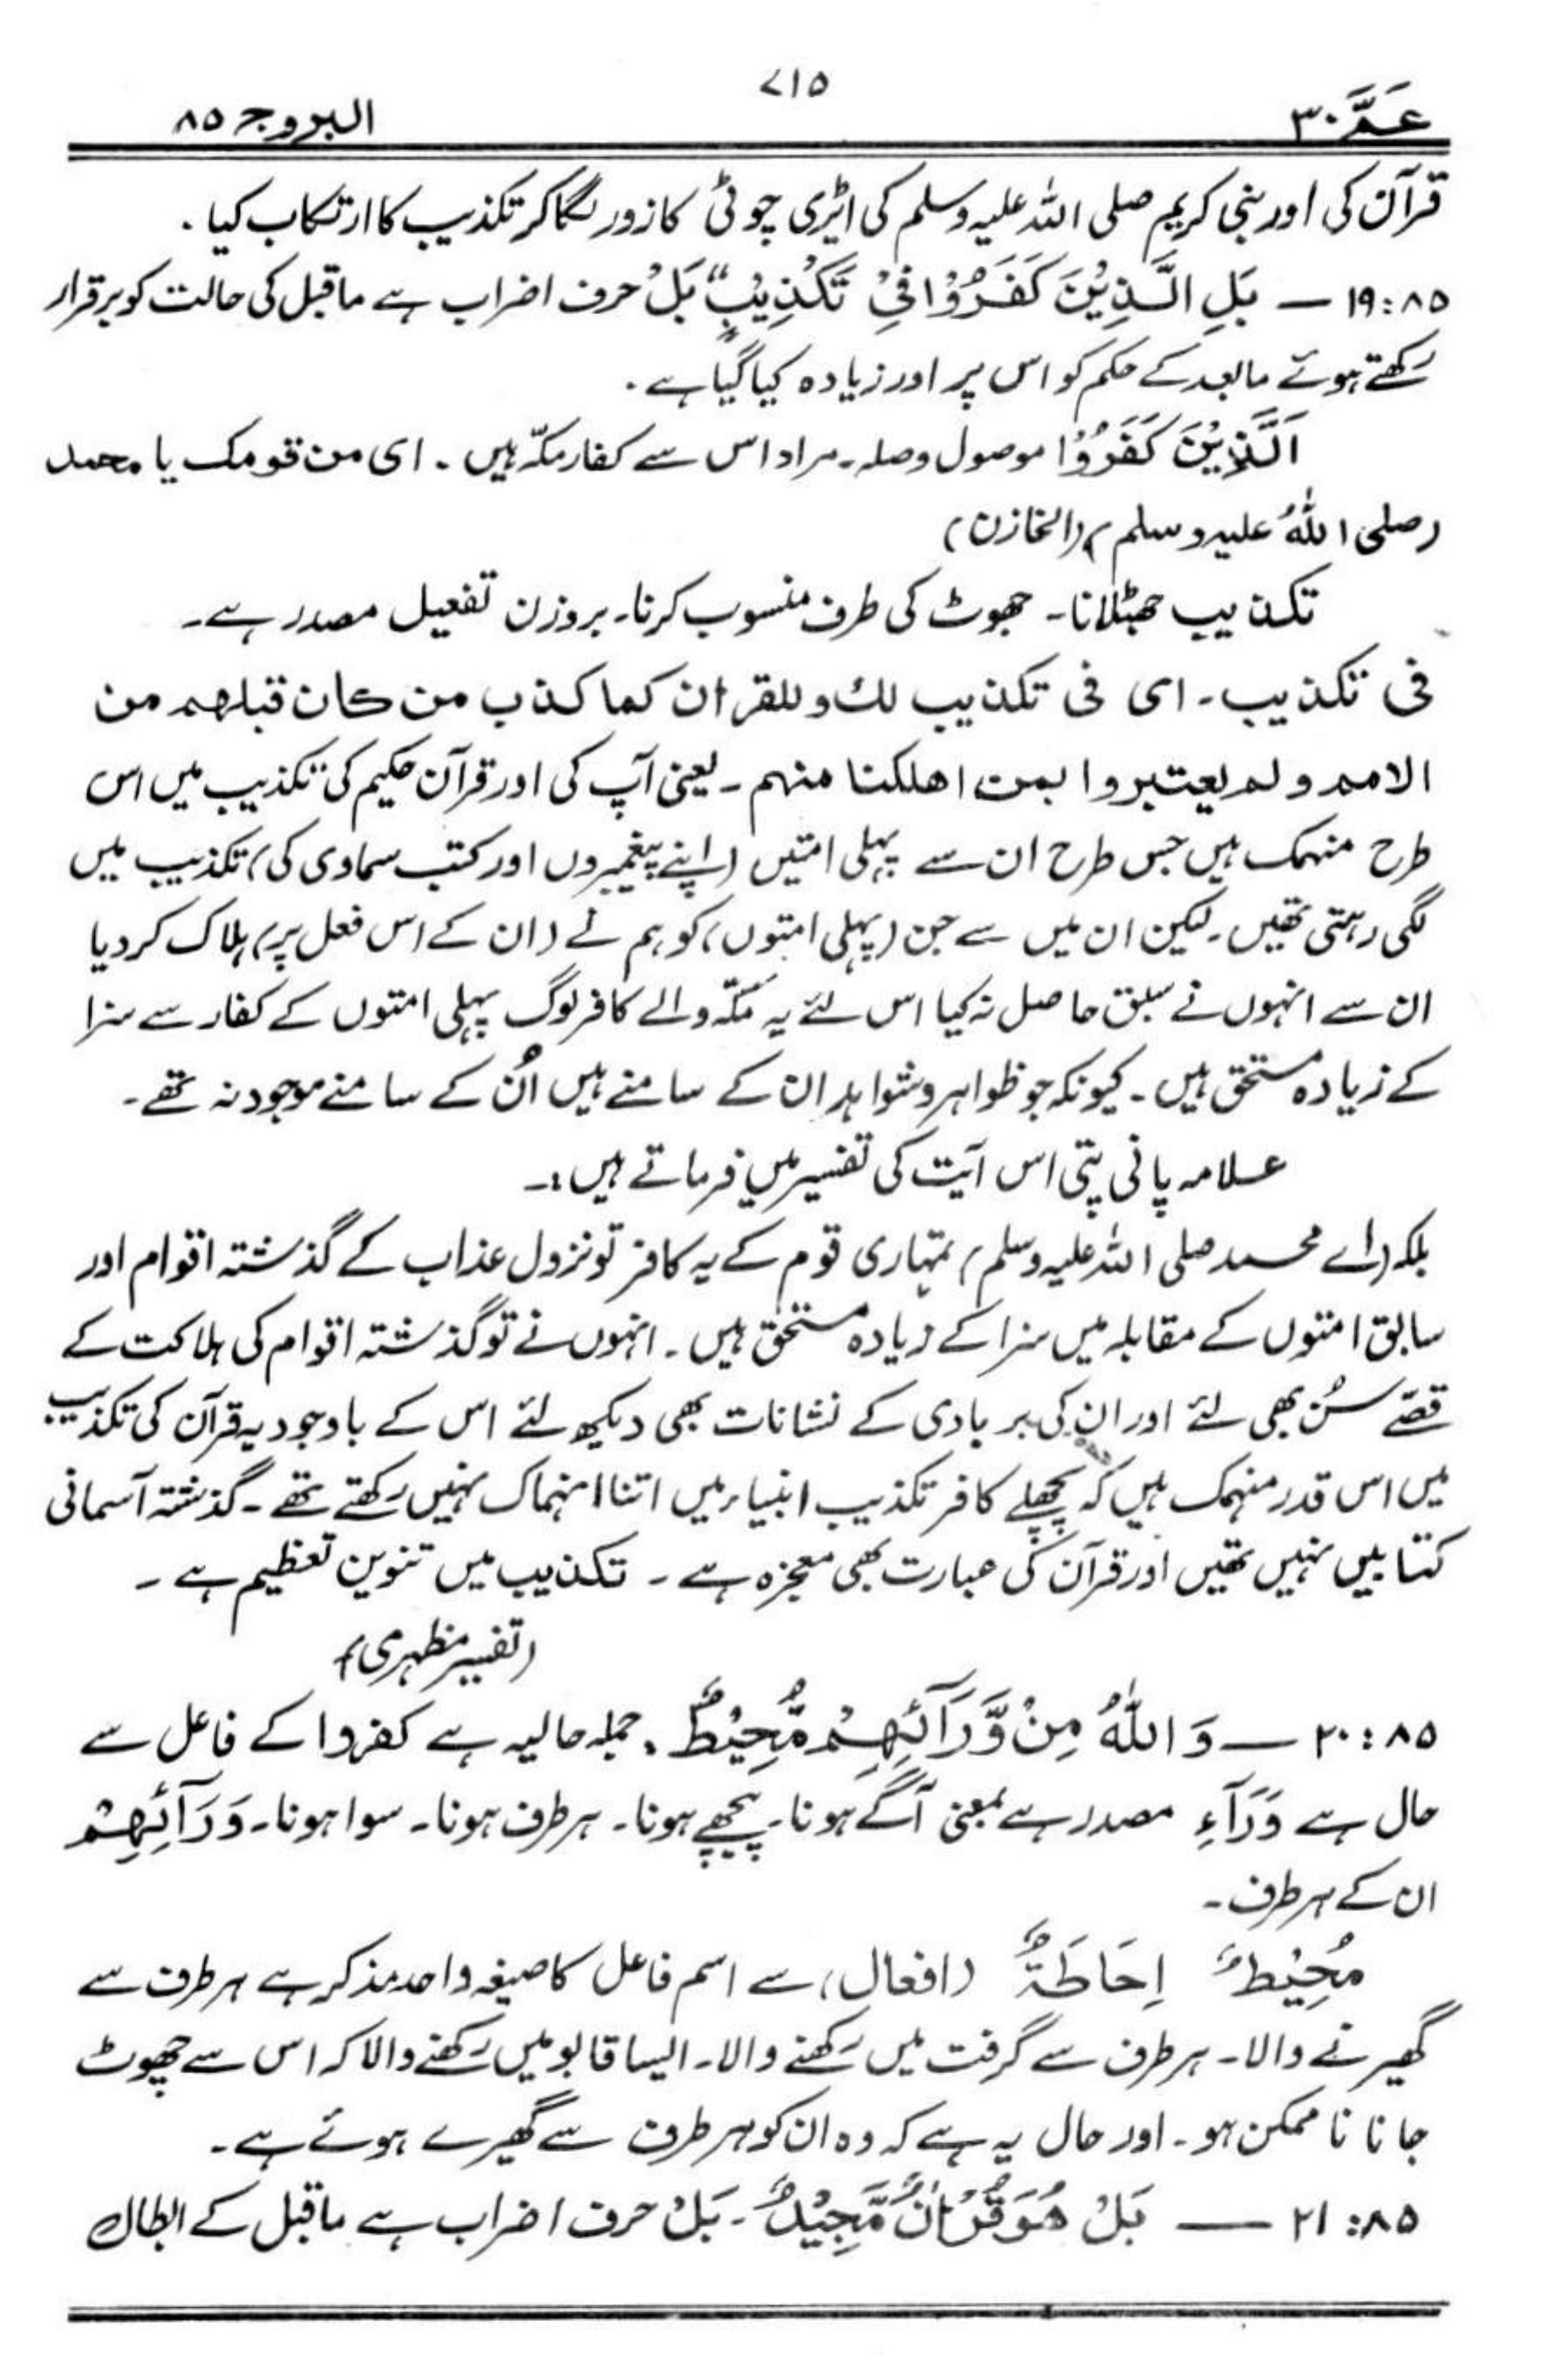 ۷۱۵
عَمَّ ۳۰ البروج ۸۵
قرآن کی اور نبی کریم صلی اللہ علیہ وسلم کی ایڑی چوٹی کا زور لگا کر تکذیب کا ارتکاب کیا ۔
۱۹:۸۵ — بَلِ الَّذِیْنَ کَفَرُوْا فِیْ تَکْذِیْبٍ ۔ بَلْ حرف اضراب ہے ماقبل کی حالت کو برقرار
رکھتے ہوئے مابعد کے حکم کو اس پر اور زیادہ کیا گیا ہے ۔
اَلَّذِیْنَ کَفَرُوْا موصول وصلہ۔ مراد اس سے کفار مکّہ ہیں ۔ ای من قومک یا محمد
(صلی اللہُ علیہ وسلم) (الخازن)
تکذیب جھٹلانا۔ جھوٹ کی طرف منسوب کرنا۔ بروزن تفعیل مصدر ہے۔
فی تکذیب۔ ای فی تکذیب لك و للقرآن کما کذب من کان قبلھم من
الامم و لم یعتبروا بمن اھلکنا منہم ۔ یعنی آپ کی اور قرآن حکیم کی تکذیب میں اس
طرح منہمک ہیں جس طرح ان سے پہلی امتیں (اپنے پیغمبروں اور کتب سماوی کی) تکذیب میں
لگی رہتی تھیں۔ لیکن ان میں سے جن (پہلی امتوں) کو ہم نے (ان کے اس فعل پر) ہلاک کردیا
ان سے انہوں نے سبق حاصل نہ کیا اس لئے یہ مکّہ والے کافر لوگ پہلی امتوں کے کفار سے سزا
کے زیادہ مستحق ہیں ۔ کیونکہ جو ظواہر وشواہد ان کے سامنے ہیں اُن کے سامنے موجود نہ تھے ۔
علامہ پانی پتی اس آیت کی تفسیر میں فرماتے ہیں :۔
بلکہ (اے محمد صلی اللہ علیہ وسلم) تمہاری قوم کے یہ کافر تو نزول عذاب کے گذشتہ اقوام اور
سابق امتوں کے مقابلہ میں سزا کے زیادہ مستحق ہیں ۔ انہوں نے تو گذشتہ اقوام کی ہلاکت کے
قصّے سُن بھی لئے اور ان کی بربادی کے نشانات بھی دیکھ لئے اس کے باوجود یہ قرآن کی تکذیب
میں اس قدر منہمک ہیں کہ پچھلے کافر تکذیب انبیاء میں اتنا انہماک نہیں رکھتے تھے ۔ گذشتہ آسمانی
کتابیں نہیں تھیں اور قرآن کی عبارت بھی معجزہ ہے ۔ تکذیب میں تنوین تعظیم ہے ۔
(تفسیر مظہری)
۲۰:۸۵ — وَ اللّٰہُ مِنْ وَّرَآئِھِمْ مُّحِیْطٌ ۔ جملہ حالیہ ہے کفروا کے فاعل سے
حال ہے وَرَآءِ مصدر ہے بمعنی آگے ہونا۔ پیچھے ہونا۔ ہر طرف ہونا۔ سوا ہونا۔ وَرَآئِھِمْ
ان کے ہر طرف ۔
مُحِیْطٌ اِحَاطَۃٌ (افعال) سے اسم فاعل کا صیغہ واحد مذکر ہے ہر طرف سے
گھیرنے والا۔ ہر طرف سے گرفت میں رکھنے والا۔ ایسا قابو میں رکھنے والا کہ اس سے چھوٹ
جانا ناممکن ہو ۔ اور حال یہ ہے کہ وہ ان کو ہر طرف سے گھیرے ہوئے ہے ۔
۲۱:۸۵ — بَلْ ھُوَ قُرْاٰنٌ مَّجِیْدٌ ۔ بَلْ حرف اضراب ہے ماقبل کے ابطال